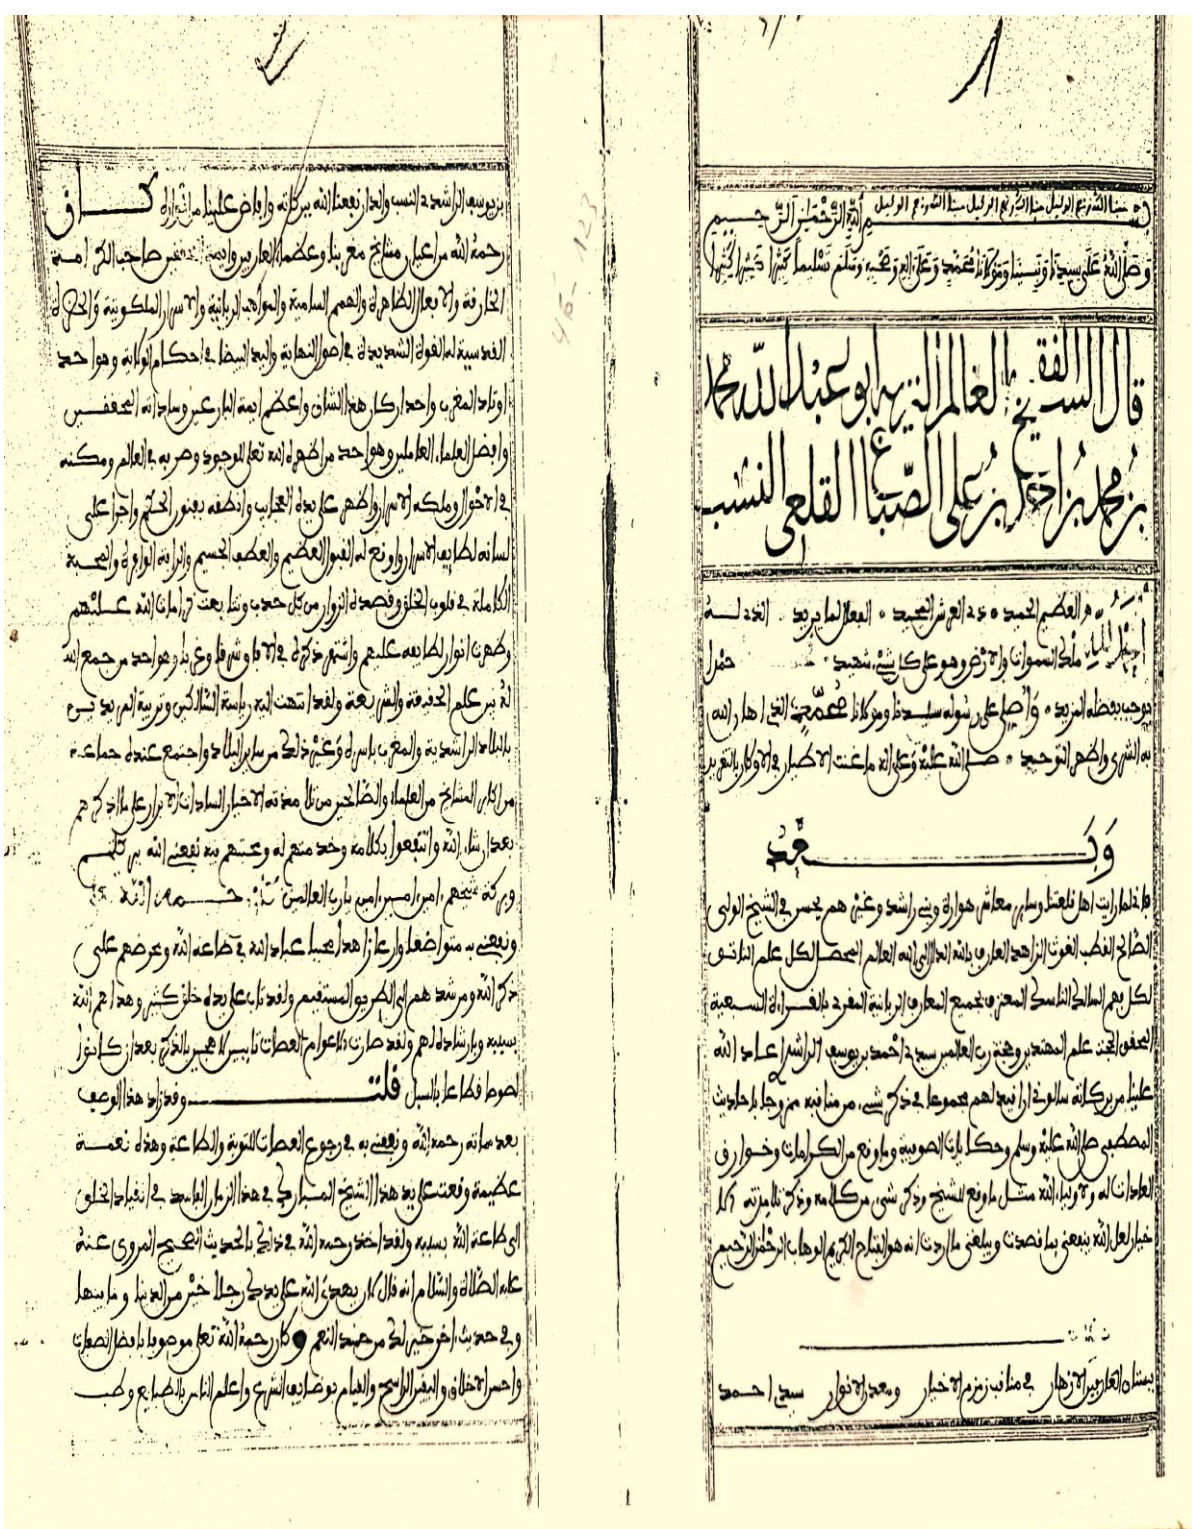 بسم الله الرحمن الرحيم
وصلى الله على سيدنا ونبينا ومولانا محمد وعلى اله وصحبه وسلم تسليما كثيرا كثيرا
قال الشيخ الفقيه العالم النزيه ابو عبد الله محمد
بن محمد بن احمد بن علي الصباغ القلعي النسب
العظيم الحميد ذي العرش المجيد الفعال لما يريد الذي له
ملك السموات والارض وهو على كل شيء شهيد حمدا
يوجب بفضله المزيد واصلي على رسوله سيدنا ومولانا محمد الذي اهان الله
به الشرك واظهر التوحيد صلى الله عليه وعلى اله ما غنت الاطيار في الاوكار بالتغريد
وبعد
فاني لما رايت اهل قلعتنا وساير معاشر هوارة وبني راشد وغيرهم يحسن في الشيخ الولي
الصالح القطب الغوث الزاهد العارف بالله الدال الى الله العالم المحصل لكل علم النافق
لكل فهم السالك الناسك المعترف بجميع المعارف الربانية المقرئ بالقراءة السبعية
المحقق علم المهتدين وحجة رب العالمين سيدي احمد بن يوسف الراشدي اعاد الله
علينا من بركاته سالوني ان اقيد لهم مجموعا في ذكر شيء من مناقبه ممزوجا باحاديث
المصطفى صلى الله عليه وسلم وحكايات الصوفية وما وقع من الكرامات وخوارق
العادات له ولاولياء الله مثل ما وقع للشيخ وذكر شيء من كلامه وذكر تلامذته الا
خيار لعل الله ينفعني بما قصدت ويبلغني ما اردت انه هو الفتاح الكريم الوهاب الرحمن الرحيم
بستان العارفين الازهار في مناقب زمزم الاخيار ومعدن الانوار سيدي احمد
بن يوسف الراشدي النسب والدار نفعنا الله ببركاته وافاض علينا من كان
رحمه الله من اعيان مشايخ مغربنا وعظماء العارفين صاحب الكرامة
الخارقة والافعال الظاهرة والهمم السامية والمواهب الربانية والاسرار الملكوتية والحضرة
القدسية له القوة الشديدة في احوال النهاية واليد البيضا في احكام الولاية وهو احد
اوتاد المغرب واحد اركان هذا الشان واعظم ايمة العارفين وسادات المحققين
وافضل العلماء العاملين وهو احد من اظهره الله تعلى للوجود وصرفه في العالم ومكنه
في الاحوال وملكه الاسرار واظهر على يده العجايب وانطقه بفنون الحكم واجرا على
لسانه لطايف الاسرار واوقع له القبول العظيم والعطف الجسيم والوافرة والمحبة
الكاملة في قلوب الخلق وقصده الزوار من كل حدب وتتابعت كرامات الله عليهم
وظهرت انوار لطايفه عليهم واشتهر ذكره في الافاق شرقا وغربا وهو احد من جمع الله
له بين علم الحقيقة والشريعة ولقد انتهت اليه رياسة السالكين وتربية المريدين
بالبلاد الراشدية والمغرب باسره وغير ذلك من ساير البلاد واجتمع عنده جماعة
من اكابر المشايخ من العلماء والصالحين من تلامذته الاخيار السادات الابرار على ما اذكرهم
بعد ان شاء الله وانتفعوا بكلامه وخدمتهم له ومحبتهم فيه نفعني الله ببركتهم
وبركة شيخهم امين امين امين يا رب العالمين كان رحمه الله
ونفعني به متواضعا ورعا زاهدا محبا عباد الله في طاعة الله ويحرضهم على
ذكر الله ومرشدهم الى الطريق المستقيم ولقد تاب على يده خلق كثير وهداهم الله
بسببه وبارشاده لهم ولقد صارت الاعوام العصات تايبين لاهجين بالذكر بعد ان كانوا
لصوصا قطاعا بالسبل قلت وقد زاد هذا الوصف
بعد مماته رحمه الله ونفعني به في رجوع العصات للتوبة والطاعة وهذه نعمة
عظيمة وقعت على يد هذا الشيخ المبارك في هذا الزمان الفاسد في انقياد الخلق
الى طاعة الله بسببه ولقد اخذ رحمه الله في ذلك بالحديث الصحيح المروي عنه
عليه الصلاة والسلام انه قال لان يهدي الله على يدك رجلا خير من الدنيا وما فيها
وفي حديث اخر خير لك من حمر النعم وكان رحمه الله تعلى موصوفا بافضل الصفات
واحسن الاخلاق واليقين الراسخ والقيام بوظايف الشرع واعلم الناس بالطبايع وطب